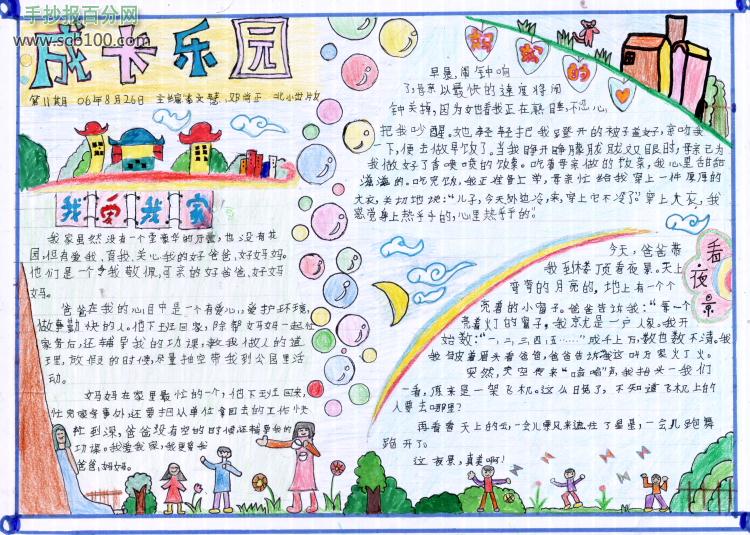 手抄报百分网
www.scb100.com
成长乐园
第11期 06年8月26日
妈妈的爱
早晨,闹钟响
了,母亲以最快的速度将闹
钟关掉,因为她看我正在熟睡,不忍心
把我吵醒。她轻轻把我蹬开的被子盖好,亲吻我
一下,便去做早饭了。当我睁开睁朦胧双眼时,母亲已为
我做好了香喷喷的饭菜。吃着母亲做的饭菜,我心里甜甜
满满的。吃完饭,我正准备上学,母亲忙给我穿上一件厚厚的
大衣,关切地说:“儿子,今天外边冷,来,穿上它不冷了。”穿上大衣,我
感觉身上热乎乎的,心里热乎乎的。”
我爱我家
我家虽然没有一个豪华的
园,但有爱我、育我、关心我的好爸爸,好妈妈。
他们是一个令我敬佩、可亲的好爸爸,好妈
妈。
爸爸在我的心目中是一个有爱心,爱护环境,
做事勤快的人。他下班回家,除帮妈妈一起忙
家务后,还辅导我的功课,教我做人的道
理,放假的时候,尽量抽空带我到公园里活
动。
妈妈在家里最忙的一个,他下班回来,
忙完家务事外,还要把从单位拿回去的工作忙
到深,爸爸没有空的时候还辅导我的
功课。我爱我家,我更爱我
爸爸,妈妈。
看夜景
今天,爸爸带
我到楼顶看夜景。天上
弯弯的月亮的,地上有一个个
亮着的小窗子。爸爸告诉我:“每一个
亮着灯的窗子,就意光是一户人家。我开
始数:“一,二,三,四,五……”成千上万,数也数不清。我
皱着眉头看爸爸,爸爸告诉我这叫万家灯火。
突然,天空传来“嗡嗡”声,我抬头一我们
一看,原来是一架飞机。这么日晚了,不知道飞机上的
人要去哪里?
再看看天上的云,一会儿飘来遮住了星星,一会儿跑舞
跑开了。
这夜景,真美啊!